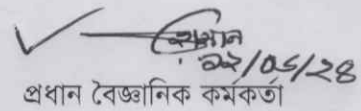 ১২/০৫/২৪
প্রধান বৈজ্ঞানিক কর্মকর্তা